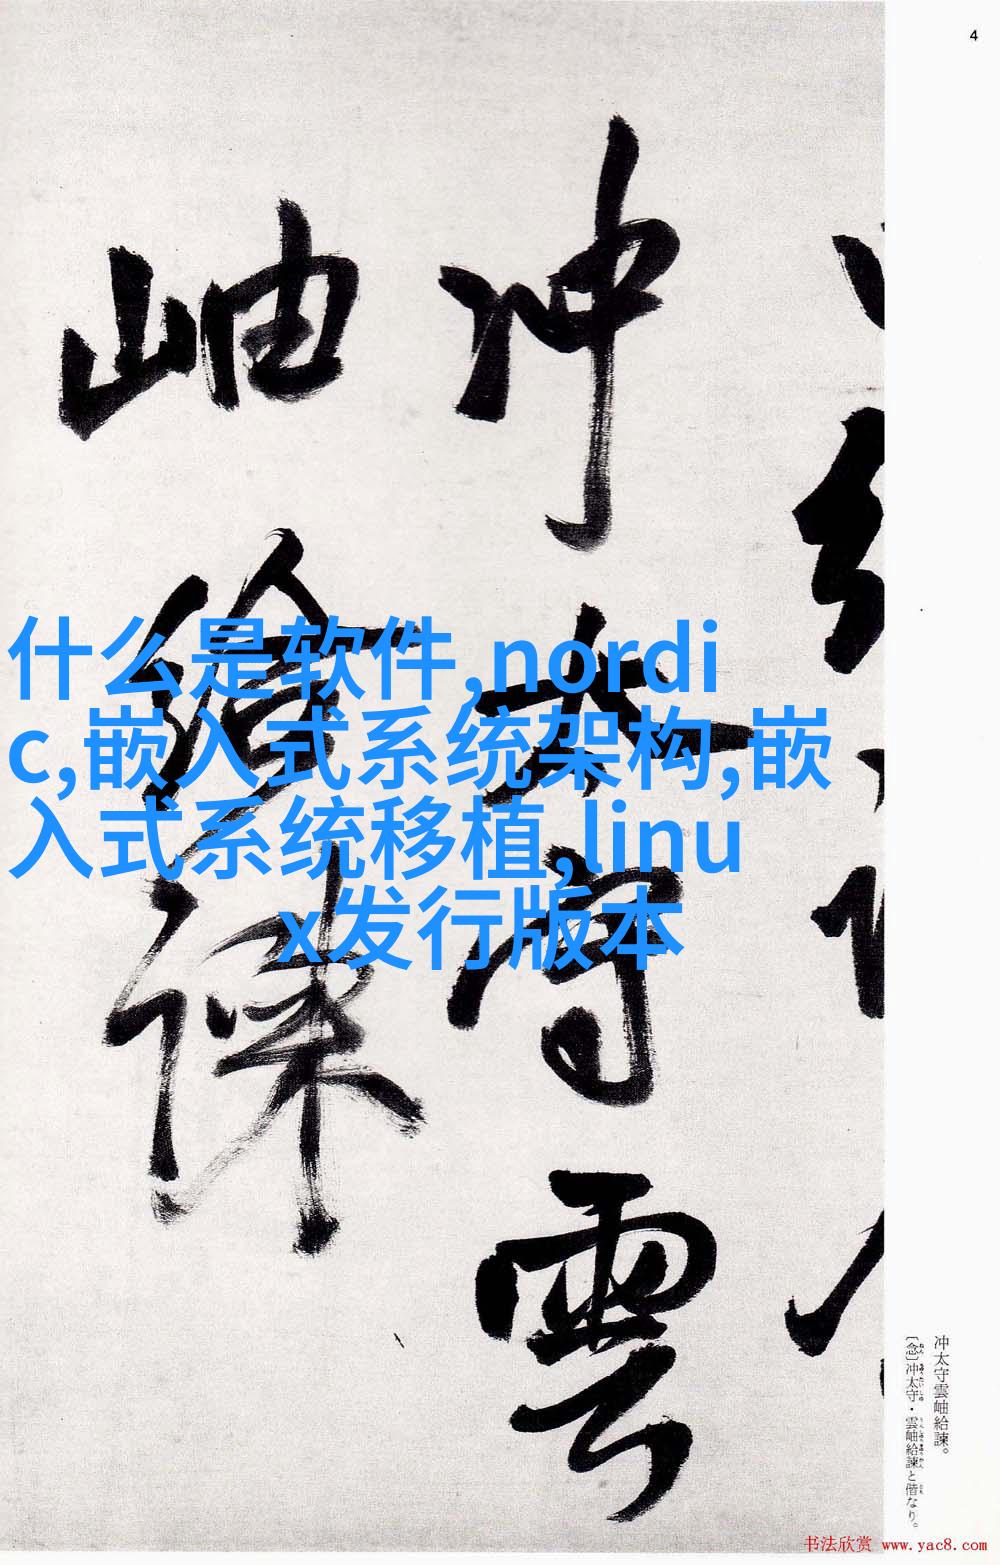 4
什么是软件,nordi
c,嵌入式系统架构,嵌
入式系统移植,linu
x发行版本
冲太守雲
岫給諫
冲太守雲岫給諫。
〔念〕冲太守・雲岫給諫と偕なり。
书法欣赏 www.yac8.com